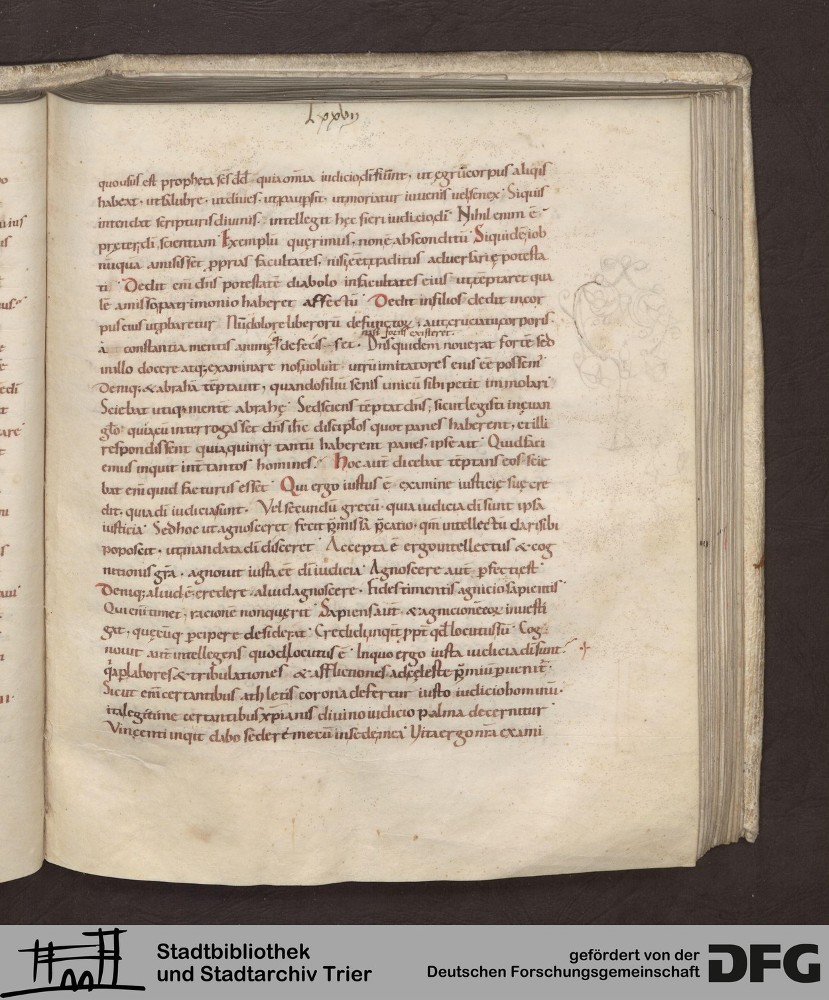 Lxxvii
quo usus est propheta scs dd quia omnia iudicio di fiunt, ut ęgrū corpus aliqis
habeat, ut salubre, ut diues, ut pauper sit, ut moriatur iuuenis uel senex. Siquis
intendat scripturis diuinis, intellegit hęc fieri iudicio di. Nihil enim ē
pręter di scientiam. Exemplū quęrimus, non ē absconditū. Siquidē iob
nūquā amisisset pprias facultates, nisi eēt traditus aduersarię potesta
ti. Dedit eni dns potestatē diabolo in facultates eius ut tēptaret qua
lē amisso patrimonio haberet affectū. Dedit in filios dedit in cor
pus eius ut pbaretur. Nū dolore liberorū defunctoꝝ, aut cruciatu corporis
nisi fortis existeret.
a constantia mentis animę defecisset. Dns quidem nouerat fortē sed
in illo docere atq; examinare nos uoluit, utrū imitatores eius eē possem
Deniq; & abrahā tēptauit, quando filiū senis unicū sibi petit immolari.
Sciebat utiq; mentē abrahę. Sed sciens tēptat dns, sicut legisti in euan
glo. quia cū interrogasset dns ihc discipłos quot panes haberent, et illi
respondissent quia quinq; tantū haberent panes, ipse ait. Quid faci
emus inquit int tantos homines. Hoc aut dicebat tēptans eos. Scie
bat eni quid facturus esset. Qui ergo iustus ē examine iusticię suę cre
dit, quia di iudicia sunt. Vel secundū grecū, quia iudicia di sunt ipsa
iusticia. Sed hoc ut agnosceret fecit pmissā pcatio, qm intellectū dari sibi
poposcit, ut mandata di disceret. Accepta ē ergo intellectus & cog
nitionis gra, agnouit iusta eē di iudicia. Agnoscere aut pfecti est.
Deniq; aliud ē credere, aliud agnoscere. Fides timentis, agnicio sapientis.
Qui eni timet, racionē non quęrit. Sapiens aut & agnicionē eoꝝ inuesti
gat, quęcūq; pcipere desiderat. Credidi inquit ppt qd locutus sū. Cog
nouit aut intellegens quod locutus ē. In quo ergo iusta iudicia di sunt.
qa p labores & tribulationes & afflictiones ad cęleste pmiū puenit.
Sicut eni certantibus athletis corona defertur iusto iudicio hominū,
ita legitime certantibus xpianis diuino iudicio palma decernitur.
Vincenti inqit dabo sedere mecū in sede mea. Vita ergo nra exami
Stadtbibliothek
und Stadtarchiv Trier
gefördert von der
Deutschen Forschungsgemeinschaft
DFG